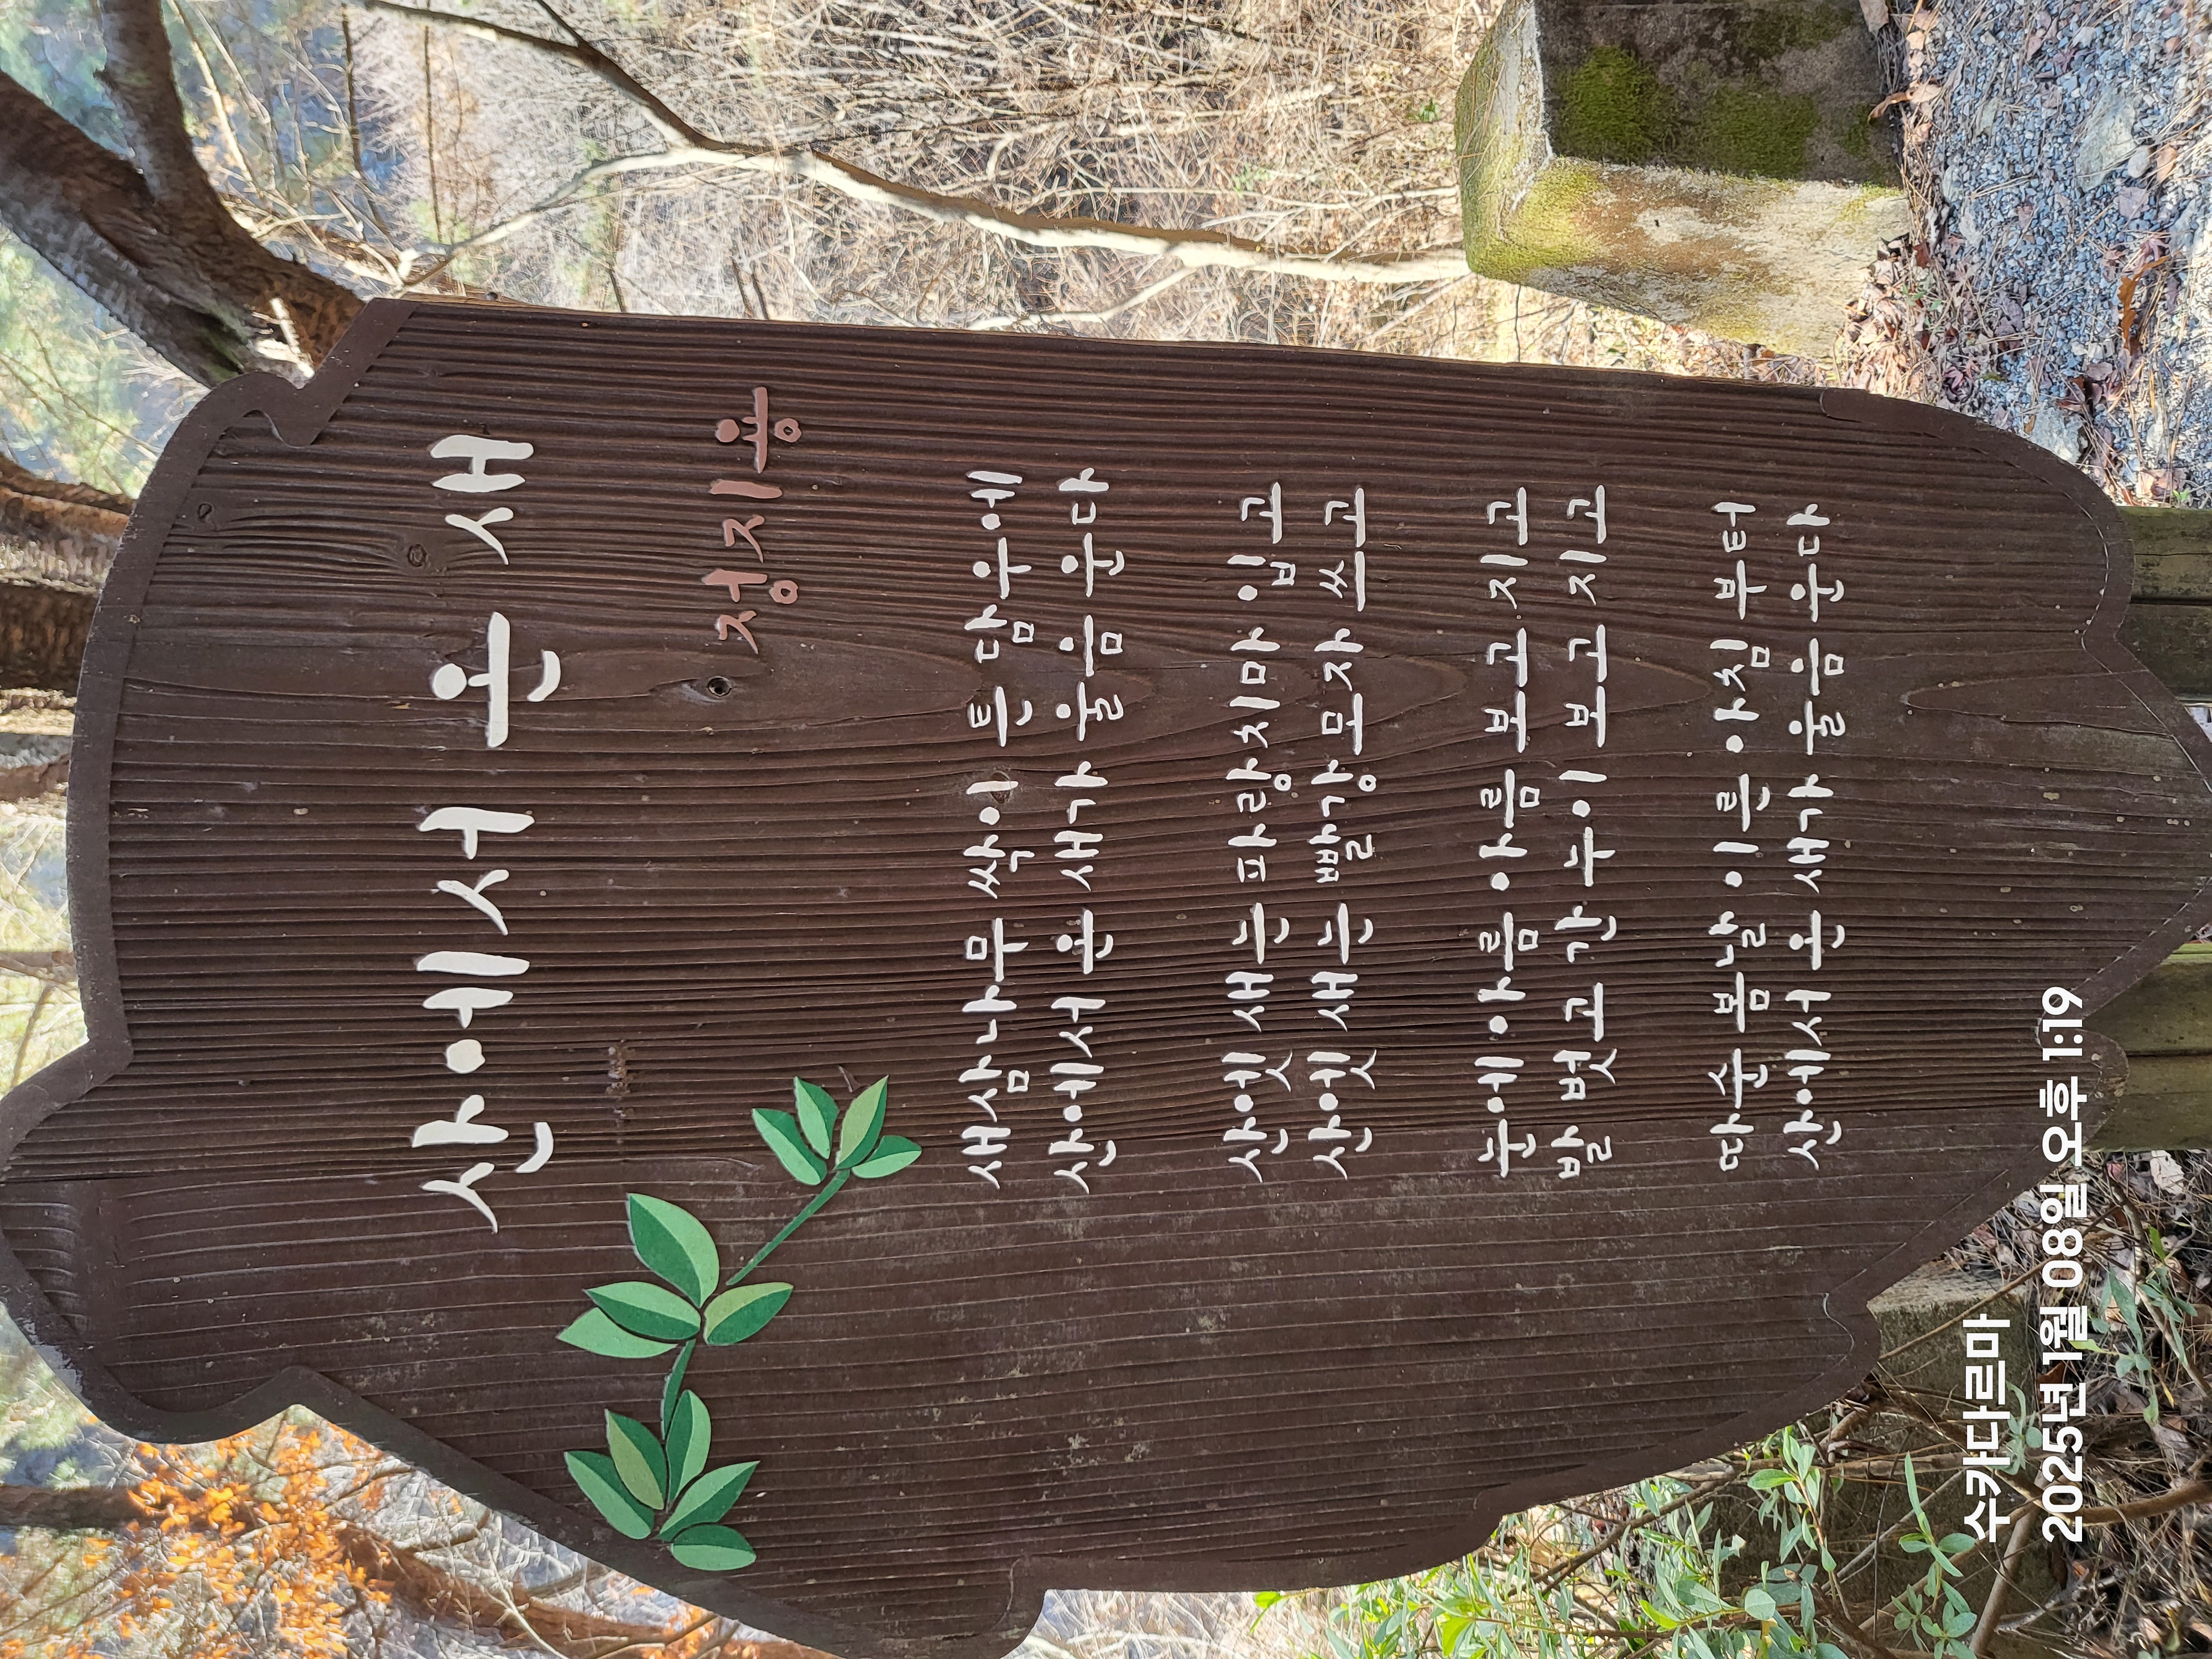 산에서 온 새
정지용
새삼나무 싹이 튼 담우에
산에서 온 새가 울음 운다
산엣 새는 파랑치마 입고
산엣 새는 빨강모자 쓰고
눈에 아름 아름 보고 지고
발 벗고 간 누이 보고 지고
따순 봄날 이른 아침 부터
산에서 온 새가 울음 운다
수카다르마
2025년 1월 08일 오후 1:19